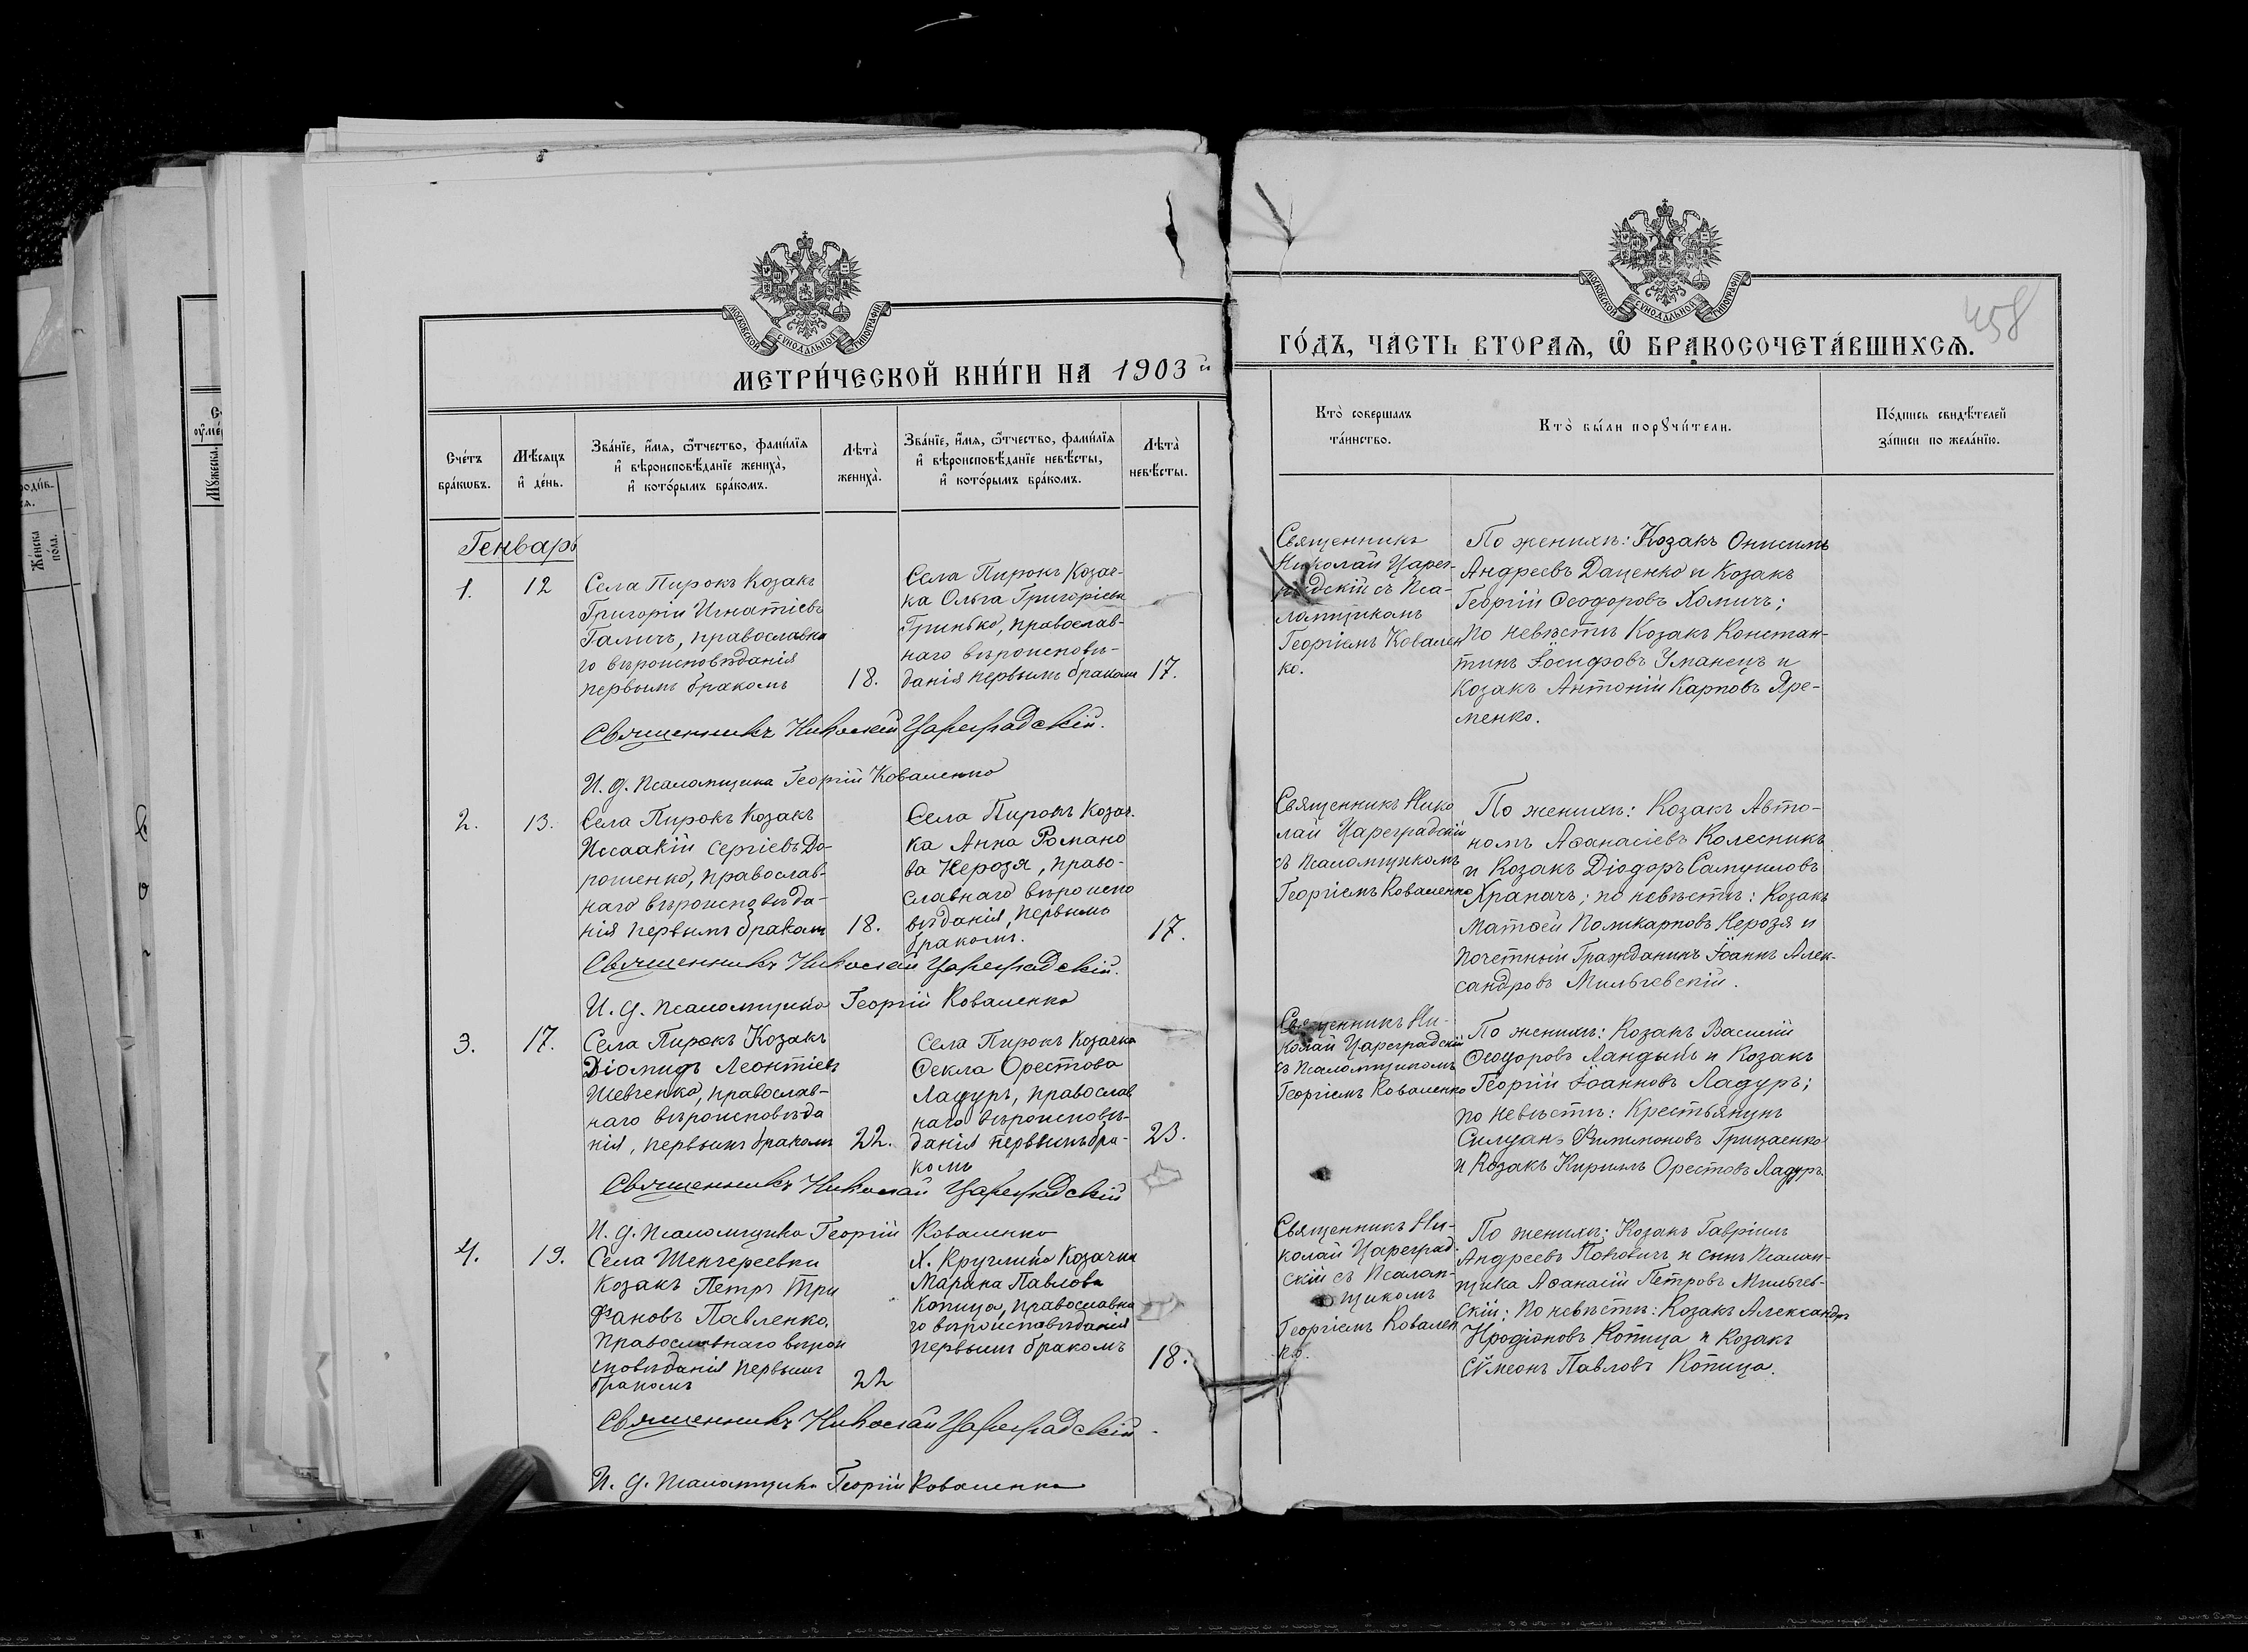 МОСКОВСКОЙ СѴНОДАЛЬНОЙ ТИПОГРАФІИ
МЕТРИ́ЧЕСКОЙ КНИ́ГИ НА 1903й
Сче́тъ
бра́кѡвъ.
Мѣ́сяцъ
и҆ де́нь.
Зва́нїе, и҆́мѧ, ѻ҆́тчество, фами́лїѧ
и҆ вѣроисповѣ́данїе жениха̀,
и҆ кото́рымъ бра́комъ.
Лѣта̀
жениха̀.
Зва́нїе, и҆́мѧ, ѻ҆́тчество, фами́лїѧ
и҆ вѣроисповѣ́данїе невѣ́сты,
и҆ кото́рымъ бра́комъ.
Лѣта̀
невѣ́сты.
Генварь
1.
12
Села Пирокъ Козакъ
Григорій Игнатіевъ
Галичъ, православна
го вѣроисповѣданія
первымъ бракомъ
18.
Села Пирокъ Козач-
ка Ольга Григоріева
Гринько, православ-
наго вѣроисповѣ-
данія первымъ бракомъ
17.
Священникъ Николай Цареградскій.
И. д. Псаломщика Георгій Коваленко
2.
13.
Села Пирокъ Козакъ
Исаакій Сергіевъ До-
рошенко, православ-
наго вѣроисповѣда-
нія первымъ бракомъ
18.
Села Пирокъ Козач.
ка Анна Романо
ва Нерозя, право-
славнаго вѣроиспо
вѣданія, первымъ
бракомъ.
17.
Священникъ Николай Цареградскій.
И. д. Псаломщика Георгій Коваленко
3.
17.
Села Пирокъ Козакъ
Діомидъ Леонтіевъ
Шевченко, православ-
наго вѣроисповѣда
нія, первымъ бракомъ
22.
Села Пирокъ Козачка
Ѳекла Орестова
Ладуръ, православ
наго вѣроисповѣ-
данія первымъ бра-
комъ
23.
Священникъ Николай Цареградскій
И. д. Псаломщика Георгій Коваленко
4.
19.
Села Шенгереевки
Козакъ Петръ Три
фановъ Павленко,
православнаго вѣрои
сповѣданія первымъ
бракомъ
22
Х. Круглика Козачка
Марина Павлова
Копица, православна
го вѣроисповѣданія
первымъ бракомъ
18.
Священникъ Николай Цареградскій.
И. д. Псаломщика Георгій Коваленко
МОСКОВСКОЙ СѴНОДАЛЬНОЙ ТИПОГРАФІИ
458
ГО́ДЪ, ЧА́СТЬ ВТОРАѦ, Ѡ҆ БРАКОСОЧЕТА́ВШИХСѦ.
Кто̀ совершалъ
та́инство.
Кто̀ бы́ли порꙋчи́тели.
По́дпись свидѣ́телей
за́писи по жела́нїю.
Священникъ
Николай Царег-
радскій съ Пса-
ломщикомъ
Георгіемъ Ковален
ко.
По женихѣ: Козакъ Онисимъ
Андреевъ Даценко и Козакъ
Георгій Ѳеодоровъ Хомичъ;
по невѣстѣ Козакъ Констан-
тинъ Іосифовъ Уманецъ и
Козакъ Антоній Карповъ Яре-
менко.
Священникъ Нико
лай Цареградскій
съ Псаломщикомъ
Георгіемъ Коваленко
По женихѣ: Козакъ Авто-
номъ Аѳанасіевъ Колесникъ
и Козакъ Діодоръ Самуиловъ
Храпачъ; по невѣстѣ: Козакъ
Матѳей Поликарповъ Нерозя и
Почетный Гражданинъ Іоаннъ Алек-
сандровъ Мильчевскій.
Священникъ Ни-
колай Цареградскій
съ Псаломщикомъ
Георгіемъ Коваленко
По женихѣ: Козакъ Василій
Ѳеодоровъ Ландышъ и Козакъ
Георгій Іоанновъ Ладуръ;
по невѣстѣ: Крестьянинъ
Силуанъ Филимоновъ Грицаенко
и Козакъ Кириллъ Орестовъ Ладуръ
Священникъ Ни-
колай Цареград-
скій съ Псалом-
щикомъ
Георгіемъ Ковален
ко.
По женихѣ: Козакъ Гавріилъ
Андреевъ Поповичъ и сынъ Псалом-
щика Аѳанасій Петровъ Мильчев-
скій; По невѣстѣ: Козакъ Александръ
Иродіоновъ Копица и Козакъ
Сѵмеонъ Павловъ Копица.